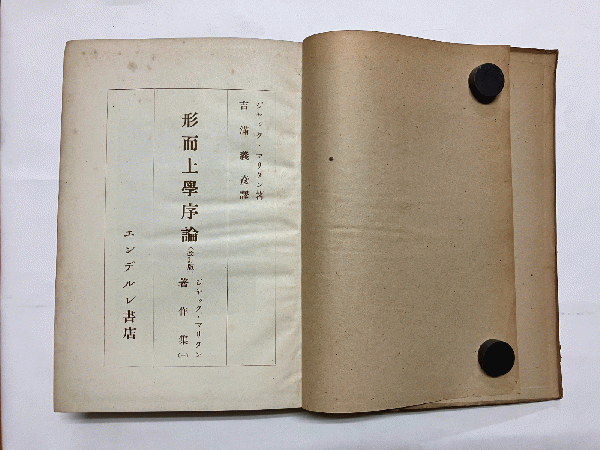 ジャック・マリタン著
吉滿義彦譯
形而上學序論
(改訂版)
ジャック・マリタン
著作集(一)
エンデルレ書店